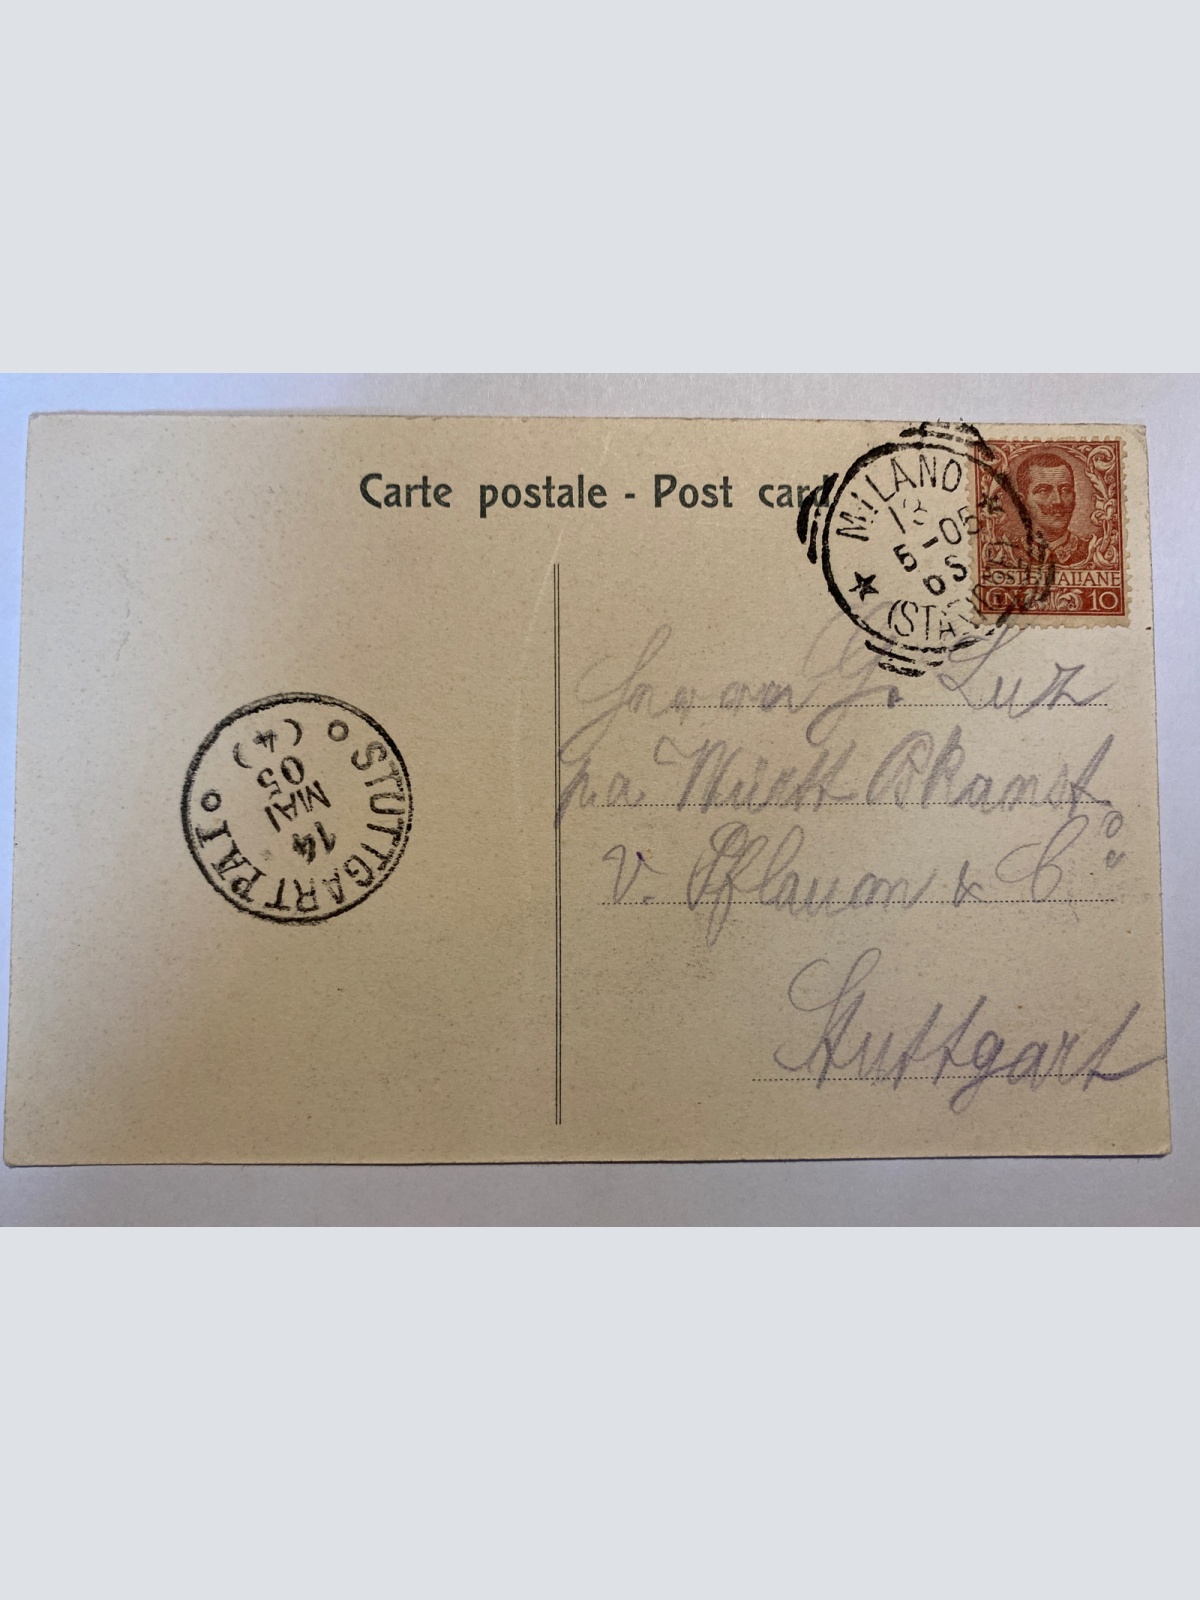 Carte postale - Post card
MILANO
13
5 - 05
6 S
(STA
POSTE ITALIANE
CENT. 10
Herrn G. Luz
pa Württ
v. Pflaum & Cº
Stuttgart
STUTTGART P.A.I
14
MAI
05
(4)